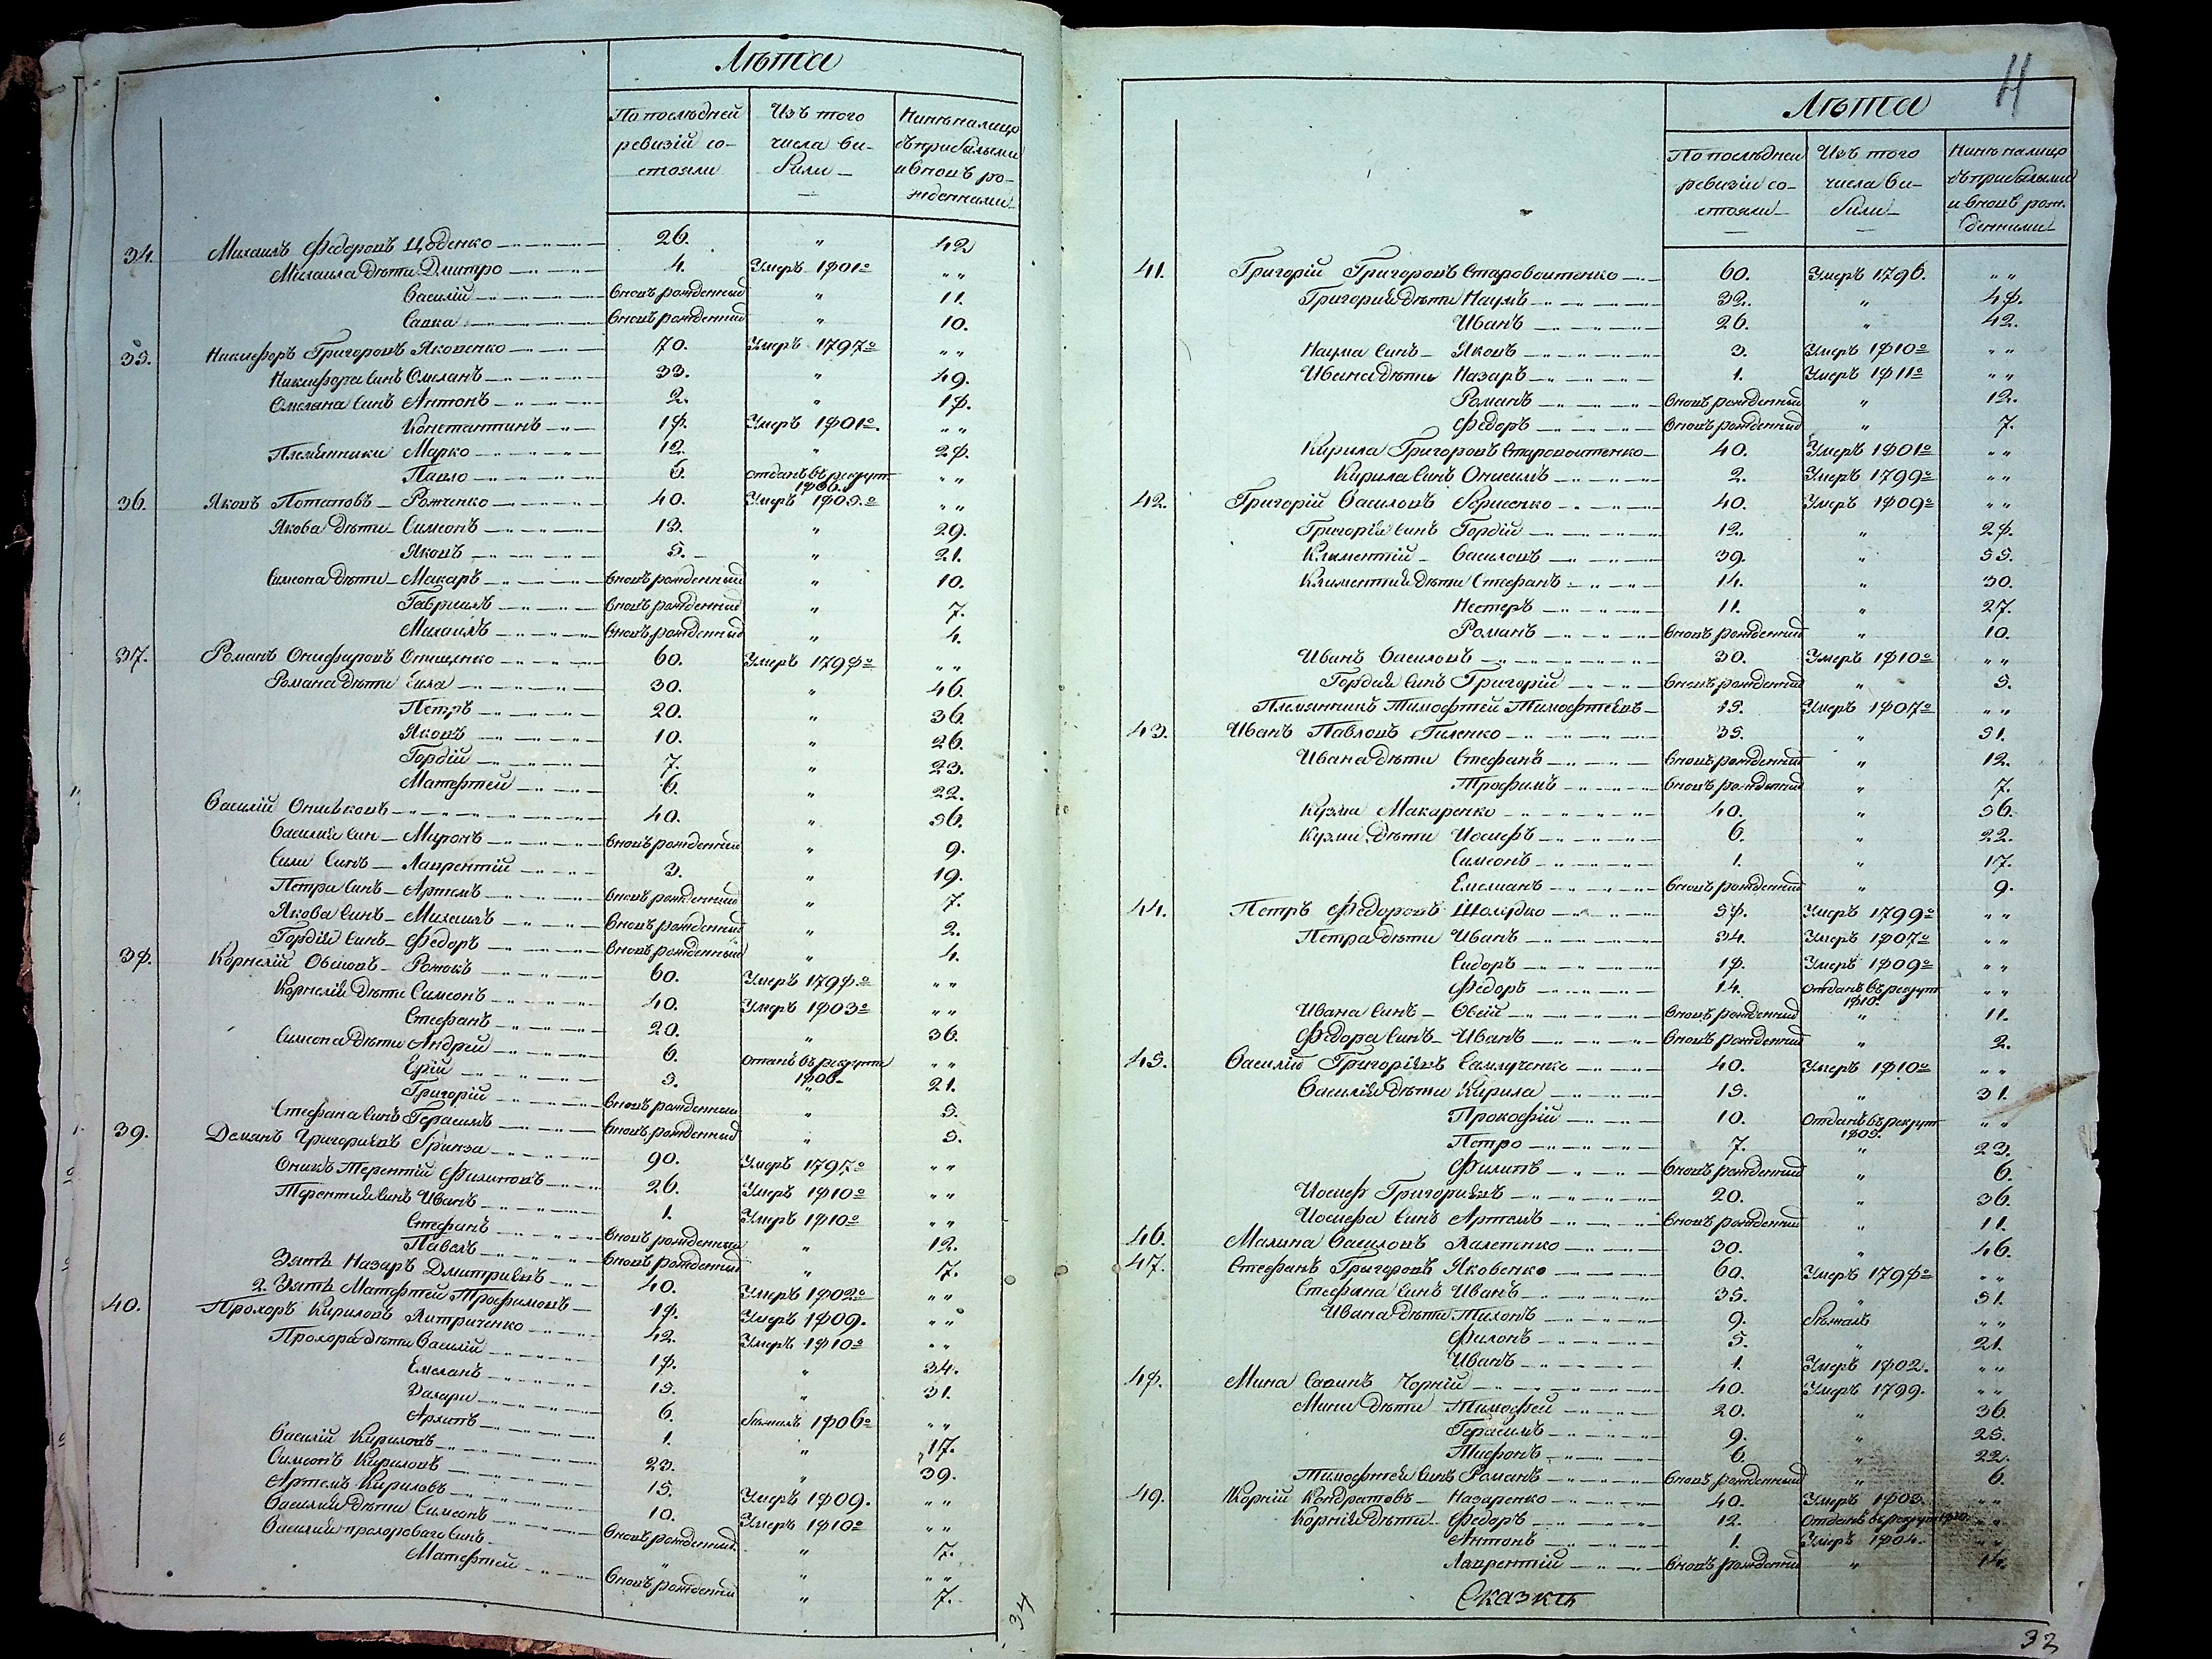 Лѣта
По послѣдней ревизій состояли
Изъ того числа выбили
Нинѣ налицо съ прибылыми и вновъ рожденными
34. Михаилъ Федоровъ Цоденко 26. " 42
Михаила дѣти Дмитро 4. Умеръ 1801го " "
Василій вновъ рожденный " 11.
Савка вновъ рожденный " 10.
35. Никифоръ Григоровъ Яковенко 70. Умеръ 1797го " "
Никифора синъ Омелянъ 33. " 49.
Омеляна синъ Антонъ 2. " 18.
Константинъ 18. Умеръ 1801го. " "
Племянники Марко 12. " 28.
Павло 6. отданъ въ рекрут 1806. " "
36. Яковъ Потаповъ Романченко 40. Умеръ 1805.го " "
Якова дѣти Симеонъ 13. " 29.
Яковъ 5. " 21.
Симеона дѣти Макаръ вновъ рожденный " 10.
Гавриилъ вновъ рожденный " 7.
Михаилъ вновъ рожденный " 4.
37. Романъ Онифировъ Онищенко 60. Умеръ 1798го " "
Романа дѣти Сила 30. " 46.
Петръ 20. " 36.
Яковъ 10. " 26.
Гордій 7. " 23.
Матфтей 6. " 22.
Василій Ониськовъ 40. " 56.
Василия син Миронъ вновъ рожденный " 9.
Сили синъ Лаврентій 3. " 19.
Петра синъ Артемъ вновъ рожденный " 7.
Якова синъ Михаилъ вновъ рожденный " 2.
Гордія синъ Федоръ вновъ рожденный " 4.
38. Корнелій Овсіовъ Рожокъ 60. Умеръ 1798.го " "
Корнелія дѣти Симеонъ 40. Умеръ 1803го " "
Стефанъ 20. " 36.
Симеона дѣти Андрей 6. отданъ въ рекрути 1806. " "
Ерій 5. " 21.
Григорій вновъ рожденный " 5.
Стефана синъ Герасимъ вновъ рожденный " 5.
39. Демянъ Григориевъ Бринза 90. Умеръ 1797го " "
Онукъ Терентій Филиповъ 26. Умеръ 1810го " "
Терентия синъ Иванъ 1. Умеръ 1810го " "
Стефанъ вновъ рожденный " 12.
Павелъ вновъ рожденный " 7.
Зять Назаръ Дмитриевъ 40. Умеръ 1802го " "
2. Зять Матфтей Трофимовъ 18. Умеръ 1809. " "
40. Прохоръ Кириловъ Литриченко 42. Умеръ 1810го " "
Прохора дѣти Василій 18. " 34.
Емелянъ 15. " 31.
Захари 6. бѣжалъ 1806го " "
Архипъ 1. " 17.
Василій Кириловъ 23. " 39.
Симеонъ Кириловъ 15. Умеръ 1809. " "
Артемъ Кириловъ 10. Умеръ 1810го " "
Василия дѣти Симеонъ вновъ рожденный " 7.
Василия прохороваго синъ " " " "
Матфтей вновъ рожденный " 7.
34
Н
Лѣта
По послѣдней ревизіи состояли
Изъ того числа выбили
Нинѣ налицо съ прибылыми и вновъ рожденними
41. Григорій Григоровъ Старовоитенко 60. Умеръ 1796. " "
Григория дѣти Наумъ 32. " 48.
Иванъ 26. " 42.
Наума синъ Яковъ 3. Умеръ 1810го " "
Ивана дѣти Назаръ 1. Умеръ 1811го " "
Романъ вновъ рожденный " 12.
Федоръ вновъ рожденный " 7.
Кирила Григоровъ Старовоитенко 40. Умеръ 1801го " "
Кирила синъ Онисимъ 2. Умеръ 1799го " "
42. Григорій Василовъ Борисенко 40. Умеръ 1809го " "
Григорія синъ Гордій 12. " 28.
Климентій Василовъ 39. " 55.
Климентия дѣти Стефанъ 14. " 30.
Нестеръ 11. " 27.
Романъ вновъ рожденный " 10.
Иванъ Василовъ 30. Умеръ 1810го " "
Гордия синъ Григорій вновъ рожденный " 5.
Племянникъ Тимофтей Тимофтеевъ 15. Умеръ 1807го " "
43. Иванъ Павловъ Гиленко 35. " 51.
Ивана дѣти Стефанъ вновъ рожденный " 12.
Трофимъ вновъ рожденный " 7.
Кузма Макаренко 40. " 56.
Кузми дѣти Иосифъ 6. " 22.
Симеонъ 1. " 17.
Емелианъ вновъ рожденный " 9.
44. Петръ Федоровъ Шолудко 58. Умеръ 1799го " "
Петра дѣти Иванъ 34. Умеръ 1807го " "
Сидоръ 18. Умеръ 1809го " "
Федоръ 14. отданъ въ рекрут 1810. " "
Ивана синъ Овсій вновъ рожденный " 11.
Федора синъ Иванъ вновъ рожденный " 2.
45. Василій Григоріевъ Самлученко 40. Умеръ 1810го " "
Василія дѣти Кирила 15. " 31.
Прокофій 10. Отданъ въ рекрут 1805. " "
Петро 7. " 23.
Филипъ вновъ рожденный " 6.
Иосиф Григориевъ 20. " 36.
Иосифа синъ Артемъ вновъ рожденный " 11.
46. Малина Василовъ Лалетенко 30. " 46.
47. Стефанъ Григоровъ Яковенко 60. Умеръ 1798го " "
Стефана синъ Иванъ 35. " 51.
Ивана дѣти Тихонъ 9. бѣжалъ " "
Филонъ 5. " 21.
Иванъ 1. Умеръ 1802. " "
48. Мина Савинъ Чорній 40. Умеръ 1799. " "
Мини дѣти Тимофей 20. " 36.
Герасимъ 9. " 25.
Тифонъ 6. " 22.
Тимофтея синъ Романъ вновъ рожденный " 6.
49. Корній Кондратовъ Назаренко 40. Умеръ 1803. " "
Корнія дѣти Федоръ 12. отданъ въ рекрут 1810. " "
Антонъ 1. Умеръ 1804. " "
Лаврентій вновъ рожденный " 14.
Сказкѣ
32